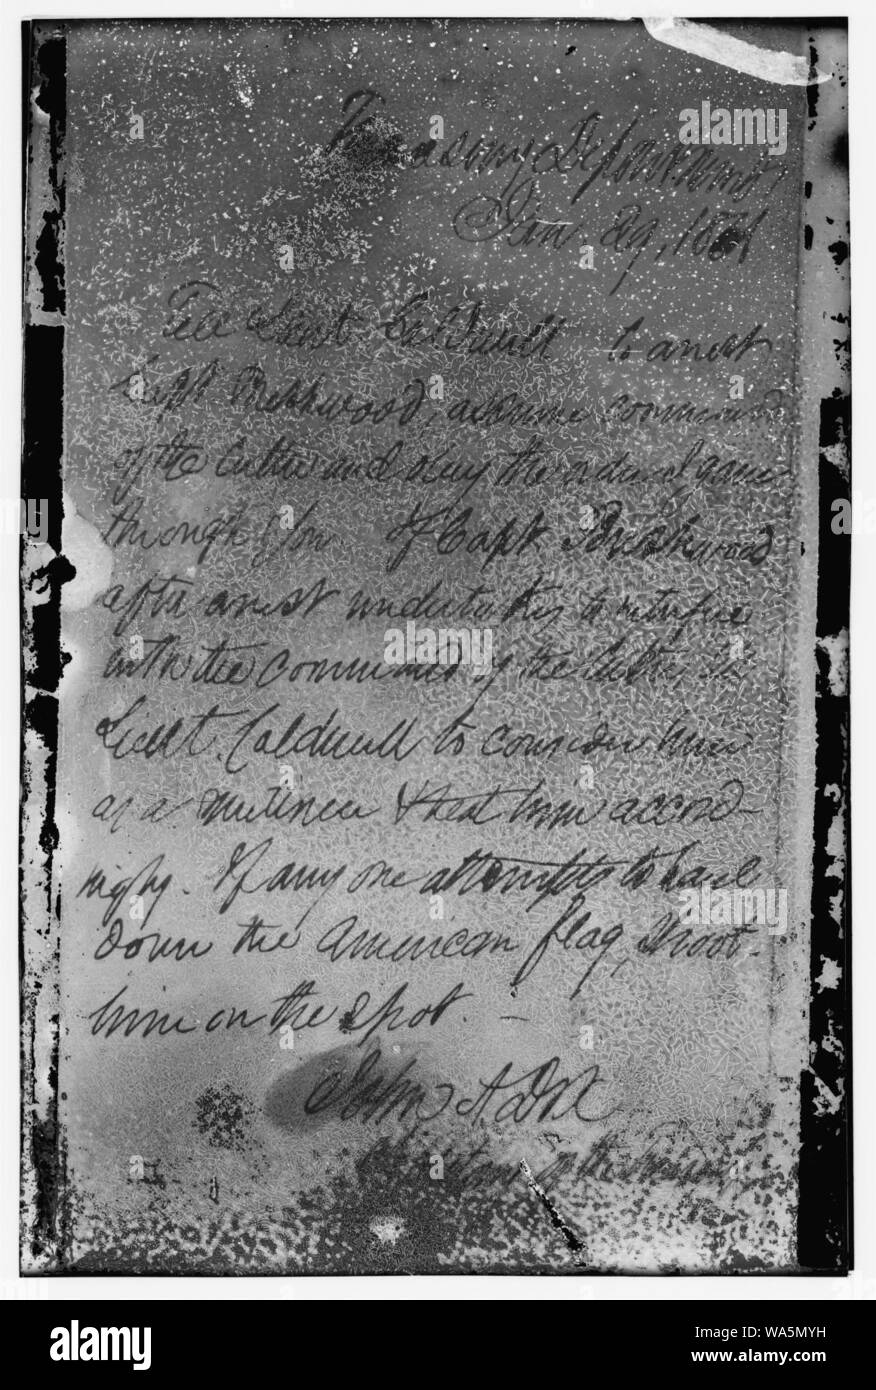 Treasury Department
Jan. 29, 1861
Tell Lieut Caldwell to arrest
Capt Breshwood, assume command
of the Cutter and obey the order I gave
through you. If Capt Breshwood
after arrest undertakes to interfere
with the command of the Cutter, tell
Lieut. Caldwell to consider him
as a mutineer & treat him accord-
ingly. If any one attempts to haul
down the American flag, shoot
him on the spot. —
John A Dix
Secretary of the Treasury
alamy
Image ID: WA5MYH
www.alamy.com